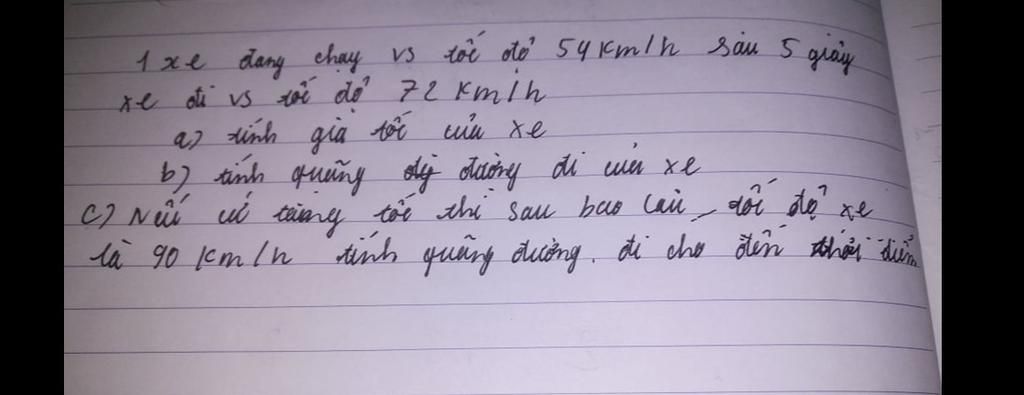 1 xe đang chạy vs tốc độ 54 Km/h sau 5 giây
xe đi vs tốc độ 72 Km/h
a) tính gia tốc của xe
b) tính quãng đường đi của xe
c) Nếu cứ tăng tốc thì sau bao lâu tốc độ xe
là 90 Km/h tính quãng đường. đi cho đến thời điểm